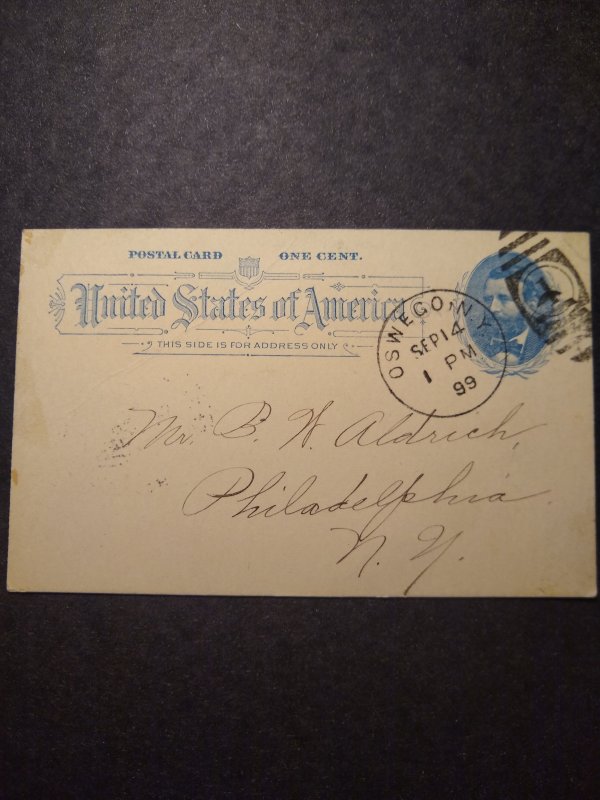 POSTAL CARD ONE CENT.
United States of America
THIS SIDE IS FOR ADDRESS ONLY
OSWEGO, N.Y.
SEP 14
1 PM
99
Mr. B. W. Aldrich,
Philadelphia
N. Y.